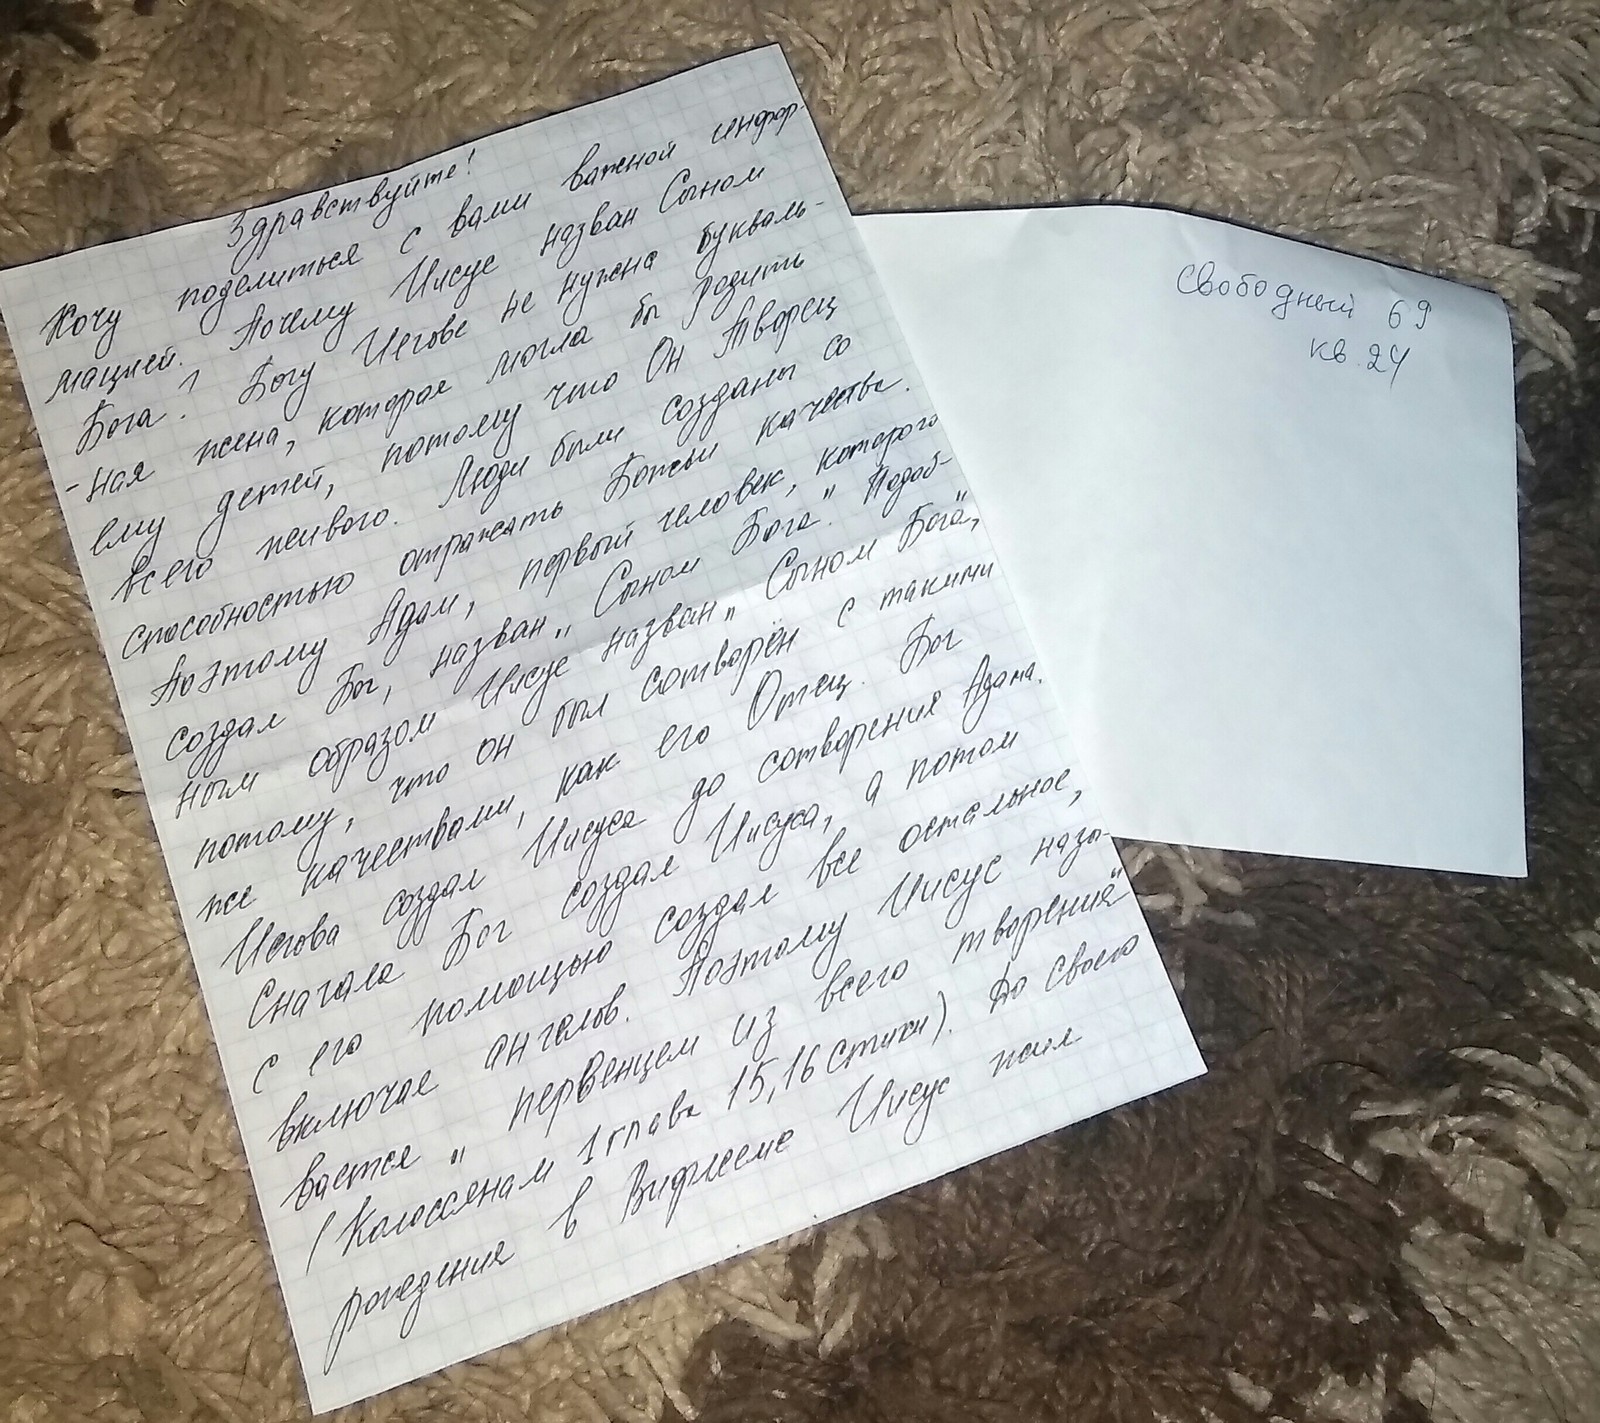 Здравствуйте!
Хочу поделиться с вами важной инфор-
мацией. Почему Иисус назван Сыном
Бога? Богу Иегове не нужна букваль-
-ная жена, которая могла бы родить
ему детей, потому что Он Творец
всего живого. Люди были созданы со
способностью отражать Божьи качества.
Поэтому Адам, первый человек, которого
создал Бог, назван „Сыном Бога." Подоб-
ным образом Иисус назван „Сыном Бога",
потому, что он был сотворён с такими
же качествами, как его Отец. Бог
Иегова создал Иисуса до сотворения Адама.
Сначала Бог создал Иисуса, а потом
с его помощью создал все остальное,
включая ангелов. Поэтому Иисус назы-
вается „первенцем из всего творения"
(Колоссянам 1 глава 15,16 стихи). До своего
рождения в Вифлееме Иисус жил
Свободный 69
кв. 24